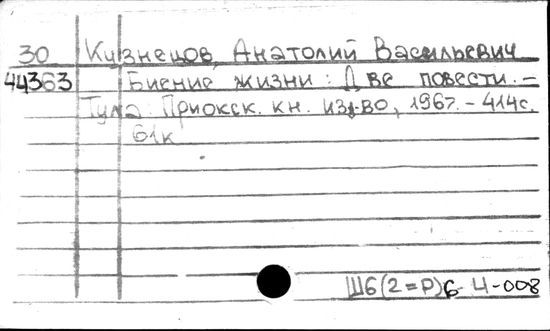 30 Кузнецов, Анатолий Васильевич
44363 Биение жизни: Две повести. –
Тула: Приокск. кн. изд-во, 1967. – 414с.
61к
Ш6(2=Р)6-4-008